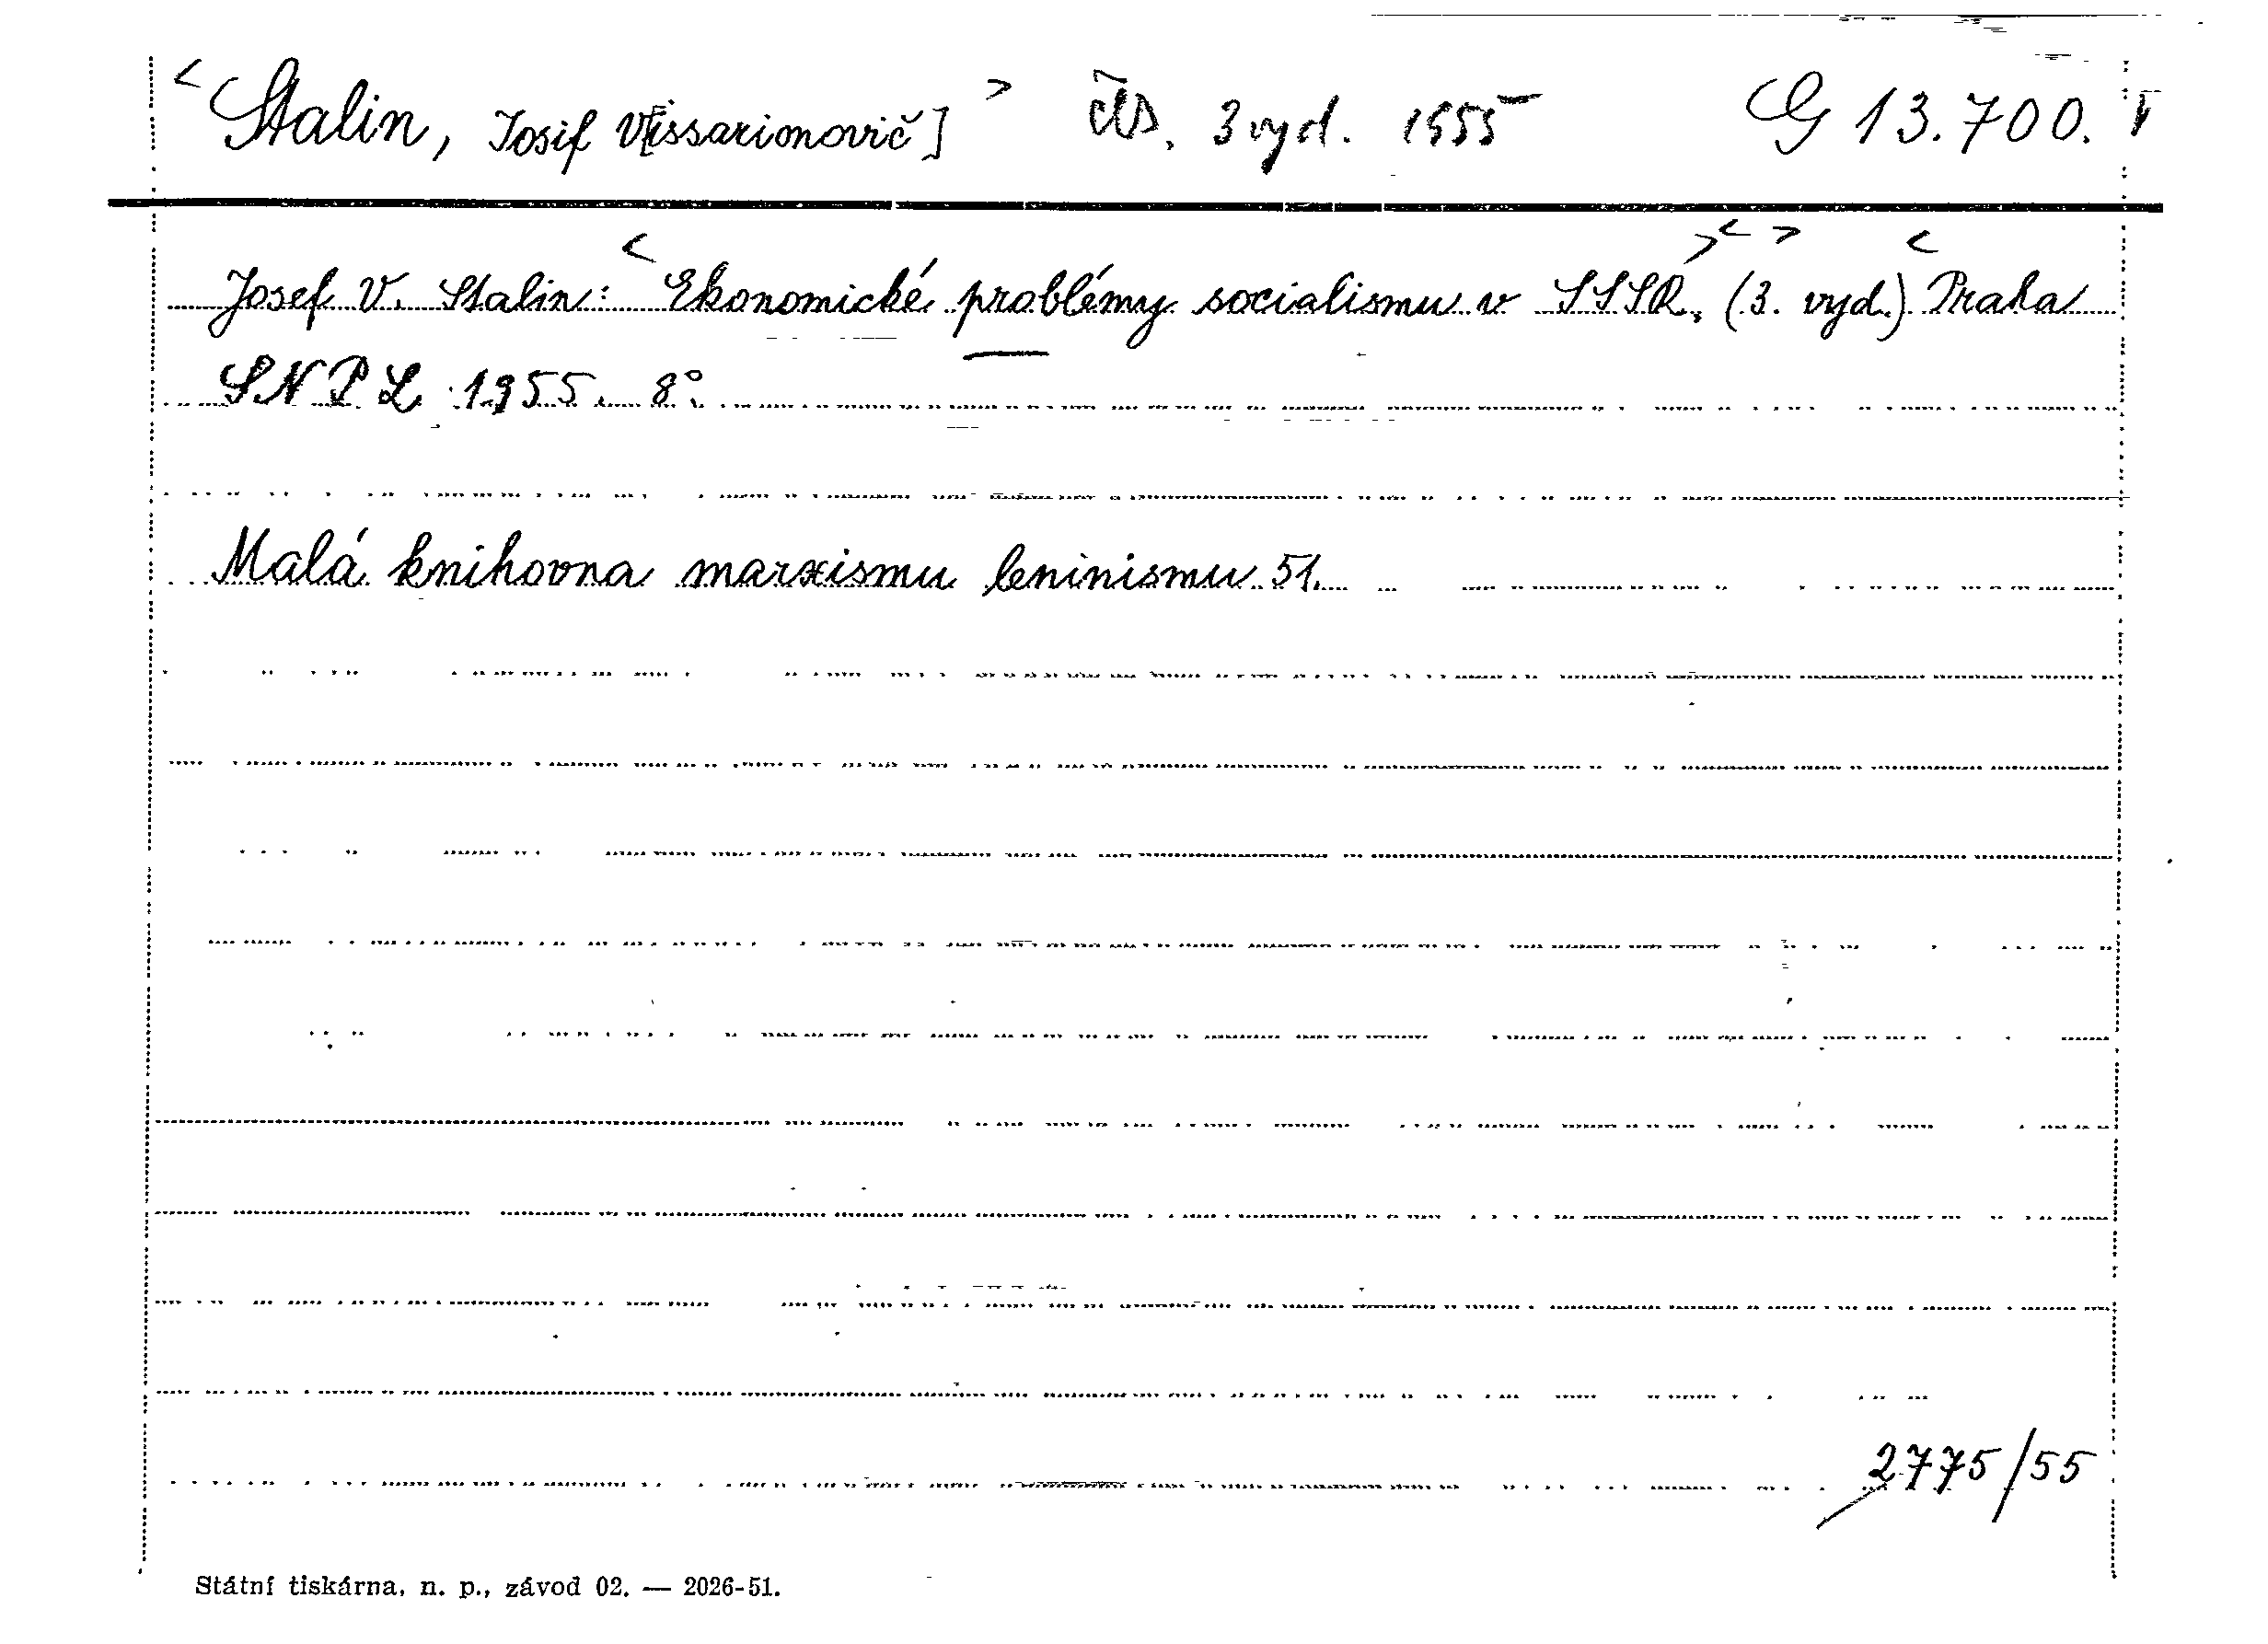 < Stalin, Josif V[issarionovič] > čes. 3 vyd. 1955 G 13.700.
Josef V. Stalin: < Ekonomické problémy socialismu v SSSR, > < (3. vyd.) > < Praha
SNPL 1955. 8°.
Malá knihovna marxismu leninismu 51.
2775/55
Státní tiskárna, n. p., závod 02. — 2026-51.